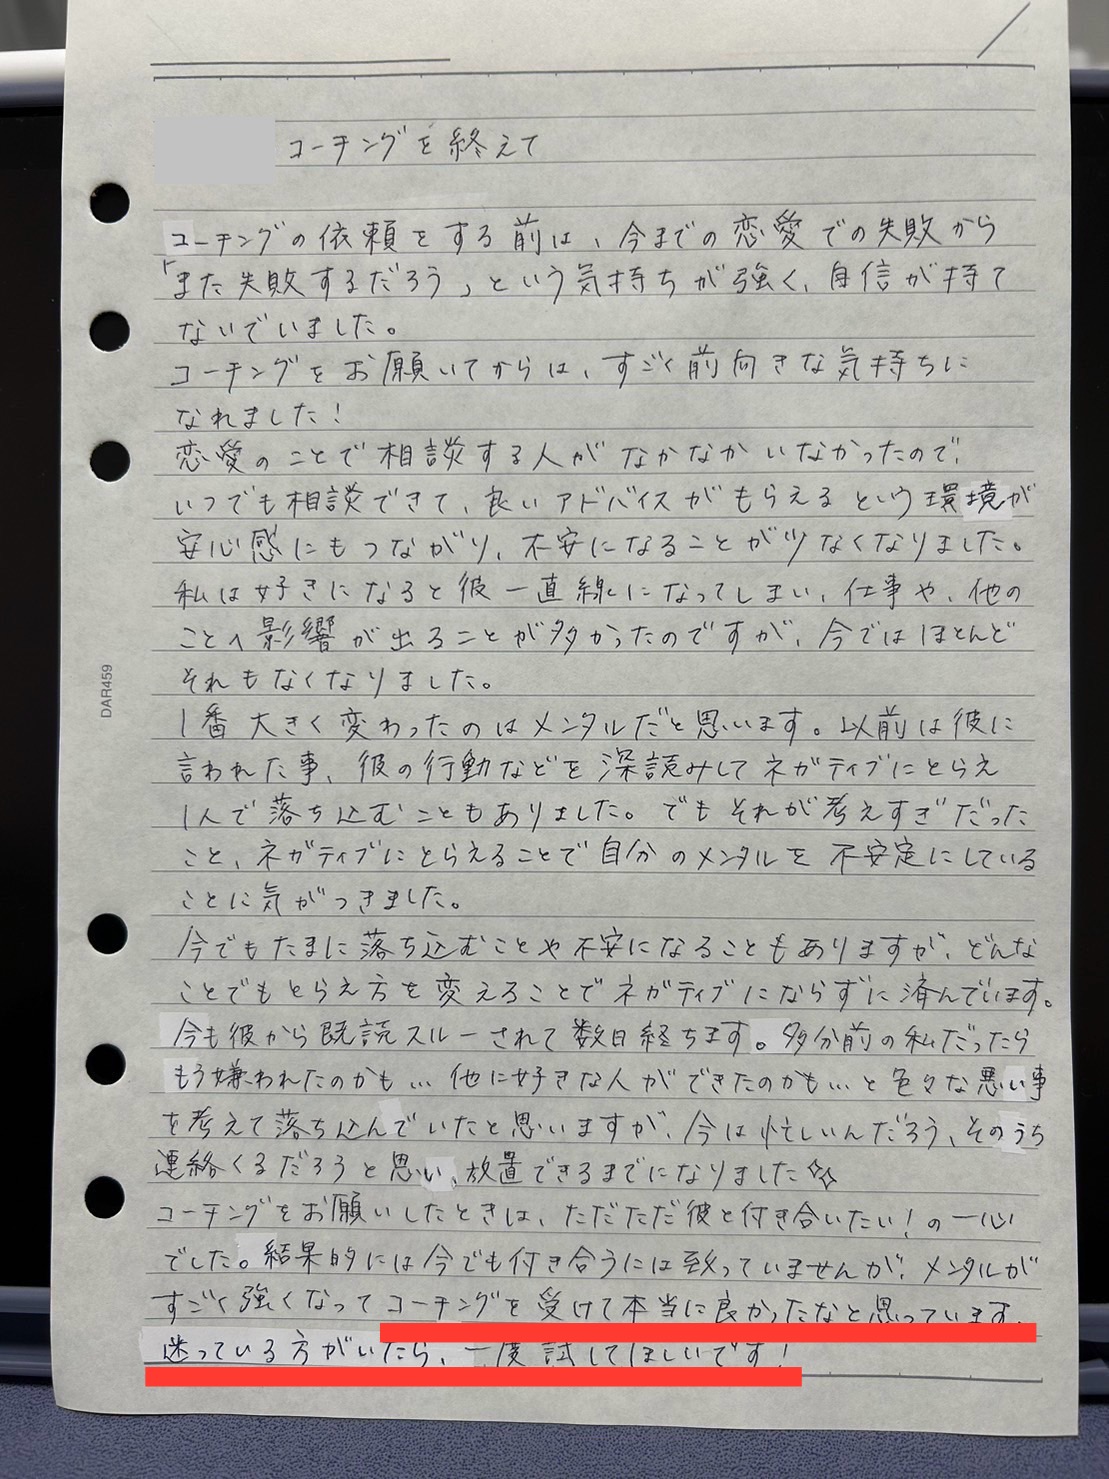 コーチングを終えて
コーチングの依頼をする前は、今までの恋愛での失敗から
「また失敗するだろう」という気持ちが強く、自信が持て
ないでいました。
コーチングをお願いてからは、すごく前向きな気持ちに
なれました!
恋愛のことで相談する人がなかなかいなかったので、
いつでも相談できて、良いアドバイスがもらえるという環境が
安心感にもつながり、不安になることが少なくなりました。
私は好きになると彼一直線になってしまい、仕事や、他の
ことへ影響が出ることが多かったのですが、今ではほとんど
それもなくなりました。
1番大きく変わったのはメンタルだと思います。以前は彼に
言われた事、彼の行動などを深読みしてネガティブにとらえ
1人で落ち込むこともありました。でもそれが考えすぎだった
こと、ネガティブにとらえることで自分のメンタルを不安定にしている
ことに気がつきました。
今でもたまに落ち込むことや不安になることもありますが、どんな
ことでもとらえ方を変えることでネガティブにならずに済んでいます。
今も彼から既読スルーされて数日経ちます。多分前の私だったら
もう嫌われたのかも…他に好きな人ができたのかも…と色々な悪い事
を考えて落ち込んでいたと思いますが、今は忙しいんだろう、そのうち
連絡くるだろうと思い、放置できるまでになりました✨
コーチングをお願いしたときは、ただただ彼と付き合いたい!の一心
でした。結果的には今でも付き合うには至っていませんが、メンタルが
すごく強くなってコーチングを受けて本当に良かったなと思っています。
迷っている方がいたら、一度試してほしいです!
DAR459